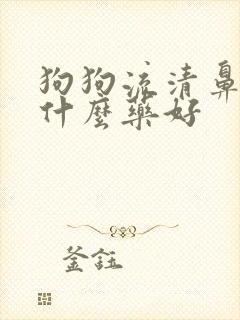 狗狗流清鼻
什麼藥好
釜鈺